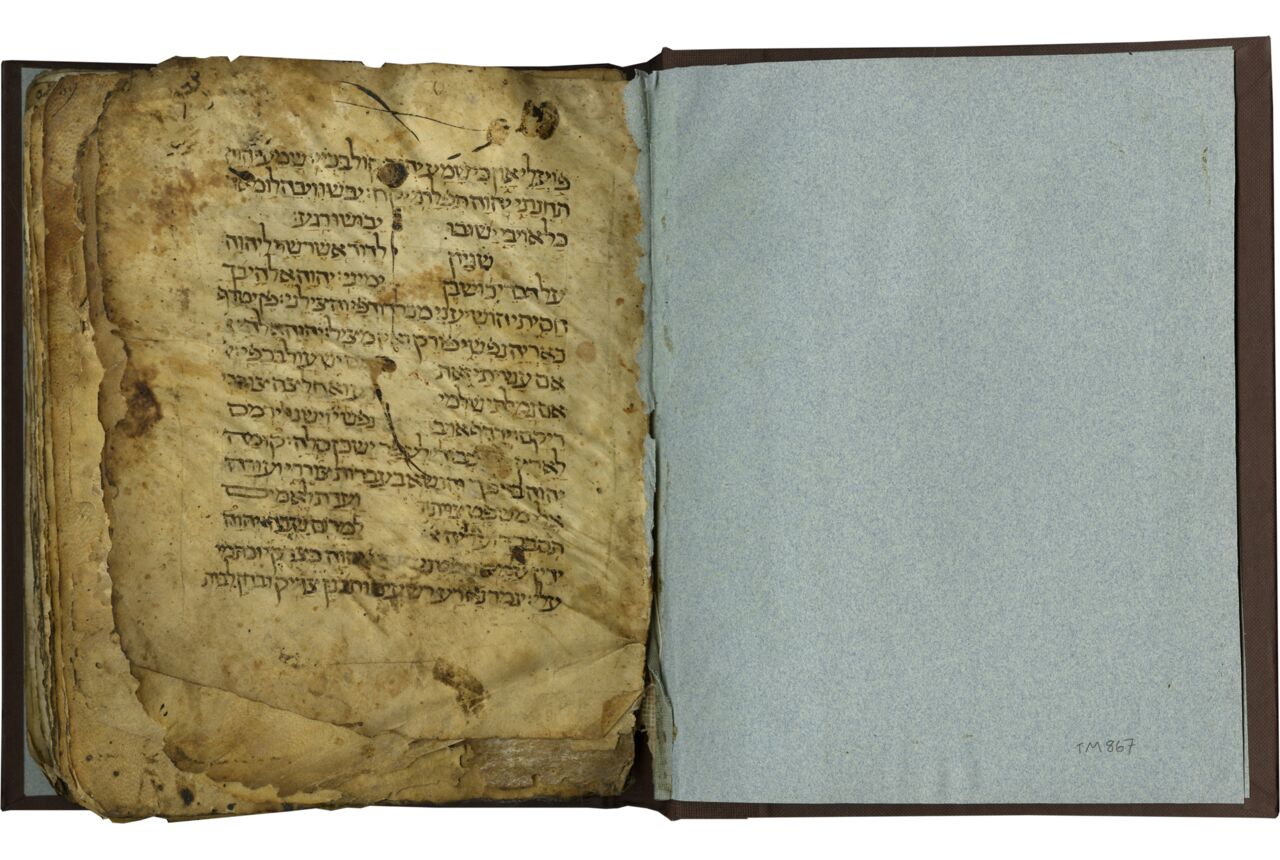 פועלי און כי שמע יהוה קול בכיי שמע יהוה
תחנתי יהוה תפלתי יקח: יבשו ויבהלו מאד
כל אויבי ישובו יבושו רגע:
שגיון לדוד אשר שר ליהוה
על דברי כוש בן ימיני: יהוה אלהי בך
חסיתי הושיעני מכל רודפי והצילני: פן יטרף
כאריה נפשי פורק ואין מציל: יהוה אלהי
אם עשיתי זאת יש עול בכפי:
אם גמלתי שולמי ואחלצה צוררי
ריקם: ירדף אויב נפשי וישג וירמס
לארץ לעפר ישכן סלה: קומה
יהוה באפך הנשא בעברות צוררי ועורה
אלי משפט צוית ועדת לאמים
תסבבך ועליה למרום שובה יהוה
ידין עמים שפטני יהוה כצדקי וכתמי
עלי: יגמר נא רע רשעים ותכונן צדיק ובחן לבות
TM 867